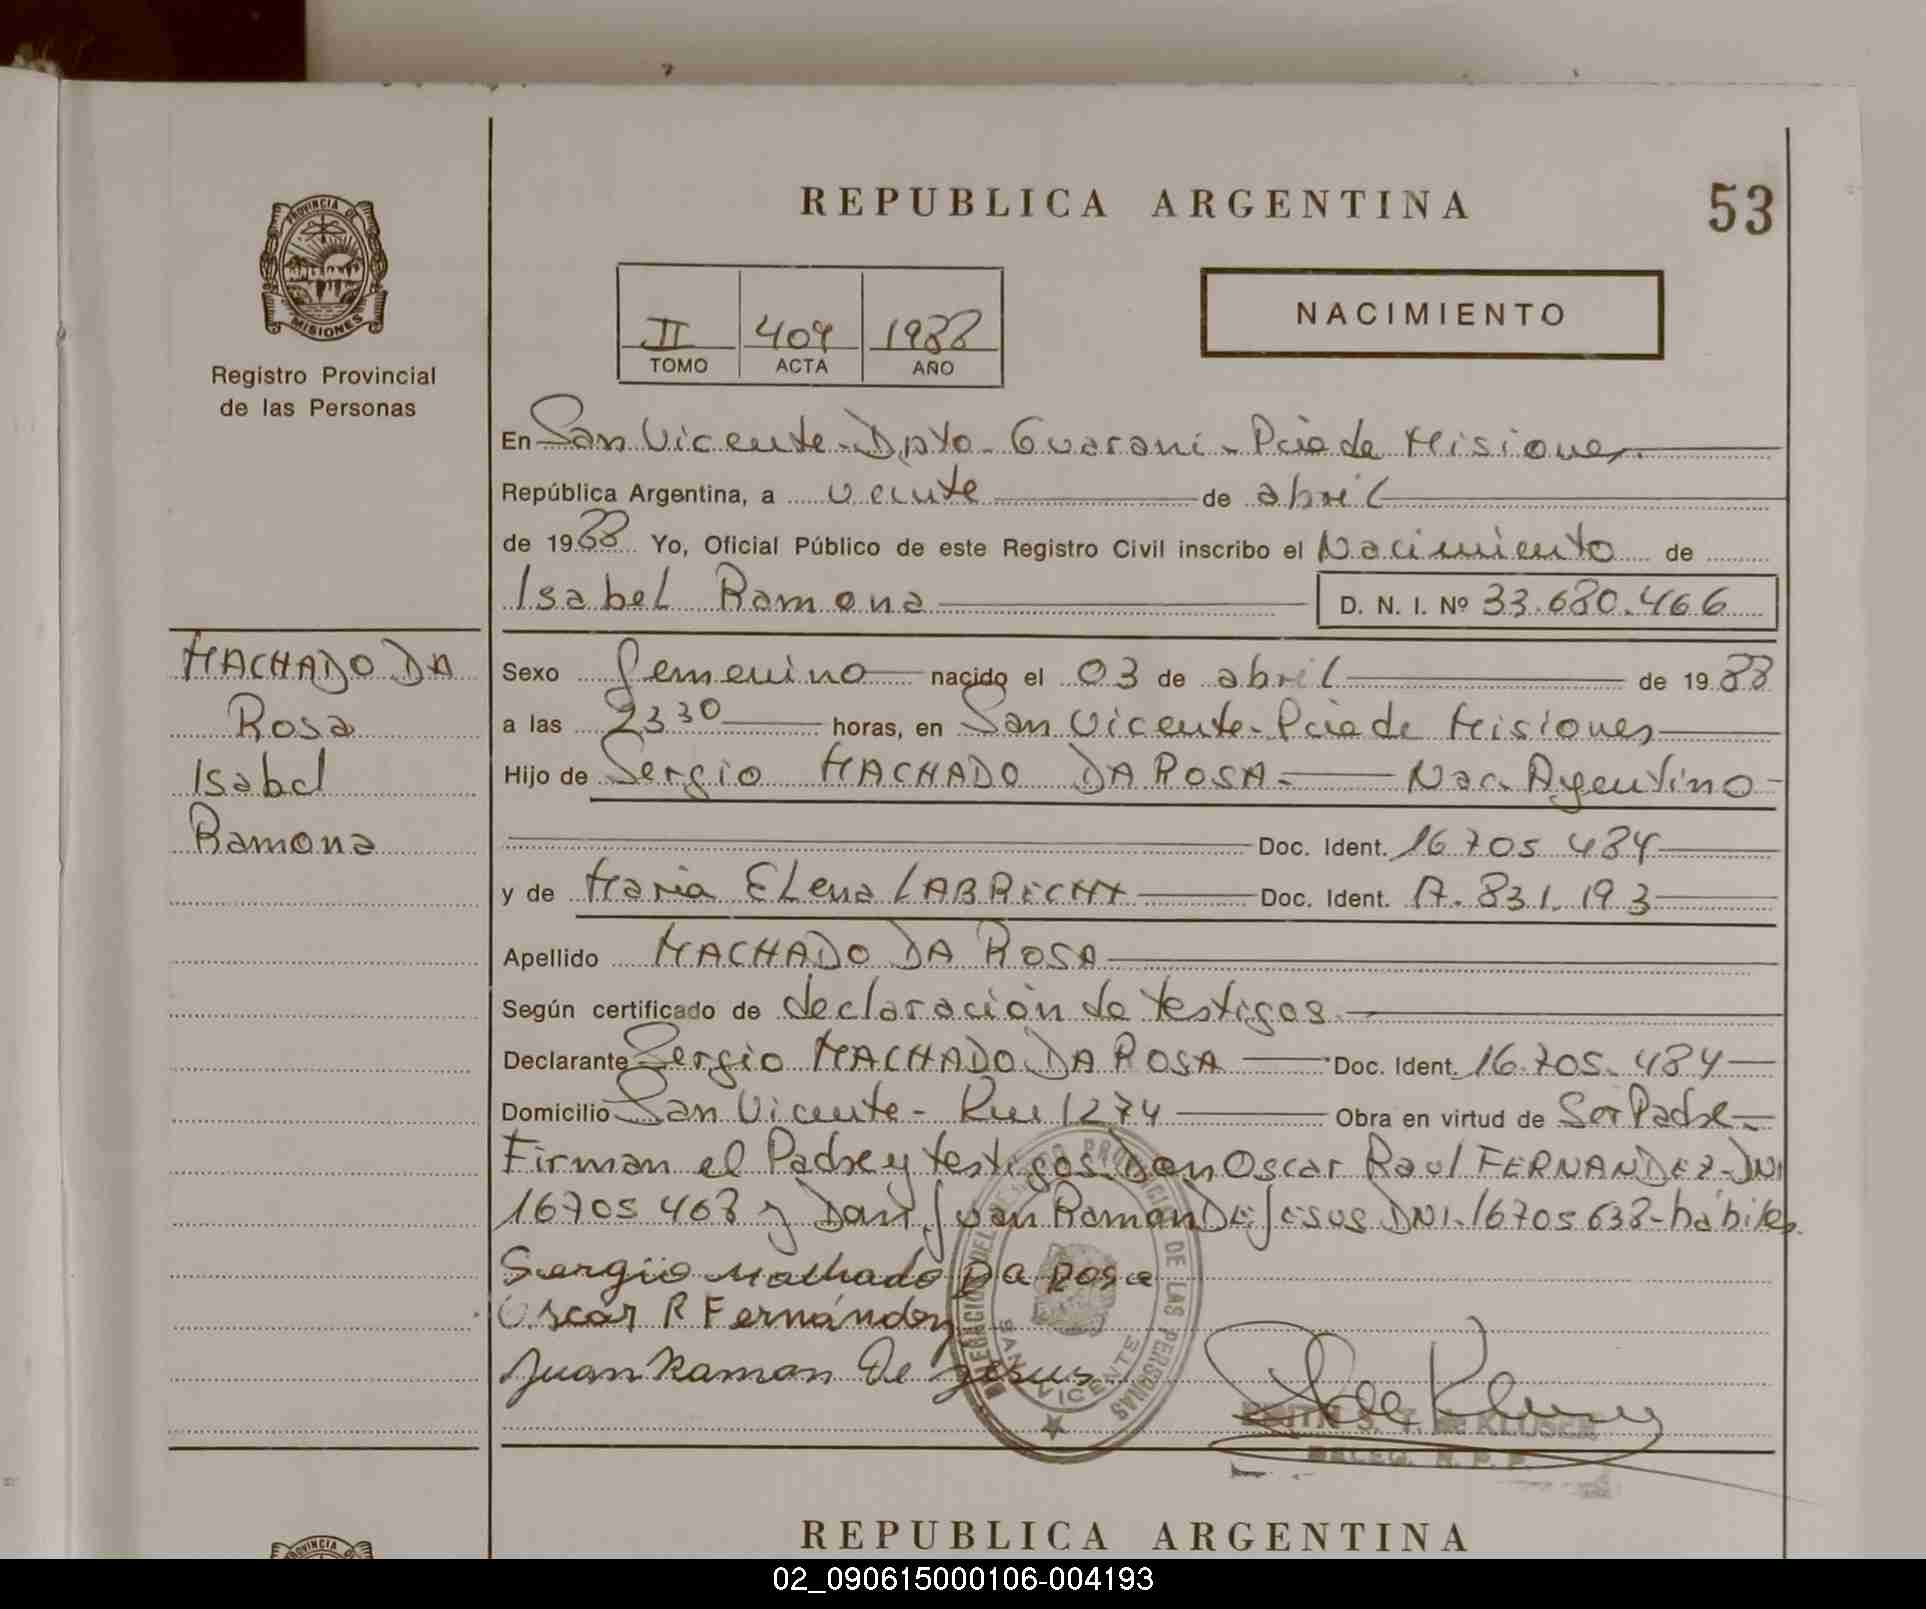 REPUBLICA ARGENTINA
53
PROVINCIA DE
MISIONES
Registro Provincial
de las Personas
II 409 1988
TOMO ACTA AÑO
NACIMIENTO
En San Vicente - Dpto - Guaraní - Pcia de Misiones.
República Argentina, a veinte de abril
de 1988 Yo, Oficial Público de este Registro Civil inscribo el Nacimiento de
Isabel Ramona D. N. I. Nº 33.680.466
MACHADO DA
Rosa
Isabel
Ramona
Sexo femenino nacido el 03 de abril de 1988
a las 23 30 horas, en San Vicente - Pcia de Misiones
Hijo de Sergio MACHADO DA ROSA - Nac. Argentino -
Doc. Ident. 16 705 484
y de Maria ELena LABRECHT Doc. Ident. 17.831.193
Apellido MACHADO DA ROSA
Según certificado de declaración de testigos
Declarante Sergio MACHADO DA ROSA Doc. Ident. 16.705.484
Domicilio San Vicente - Km 1274 Obra en virtud de Ser Padre -
Firman el Padre y testigos Don Oscar Raul FERNANDEZ - DNI
16705 468 y Don Juan Ramon DE JESUS DNI. 16705638 - hábiles.
Sergio Machado DA Rosa
Oscar R Fernández
Juan Ramon De Jesus
DELEGACION DEL REGISTRO PROVINCIAL DE LAS PERSONAS
SAN VICENTE
EDITH S. T. de KLUSEN
DELEG. R. P. P.
PROVINCIA DE
REPUBLICA ARGENTINA
02_090615000106-004193